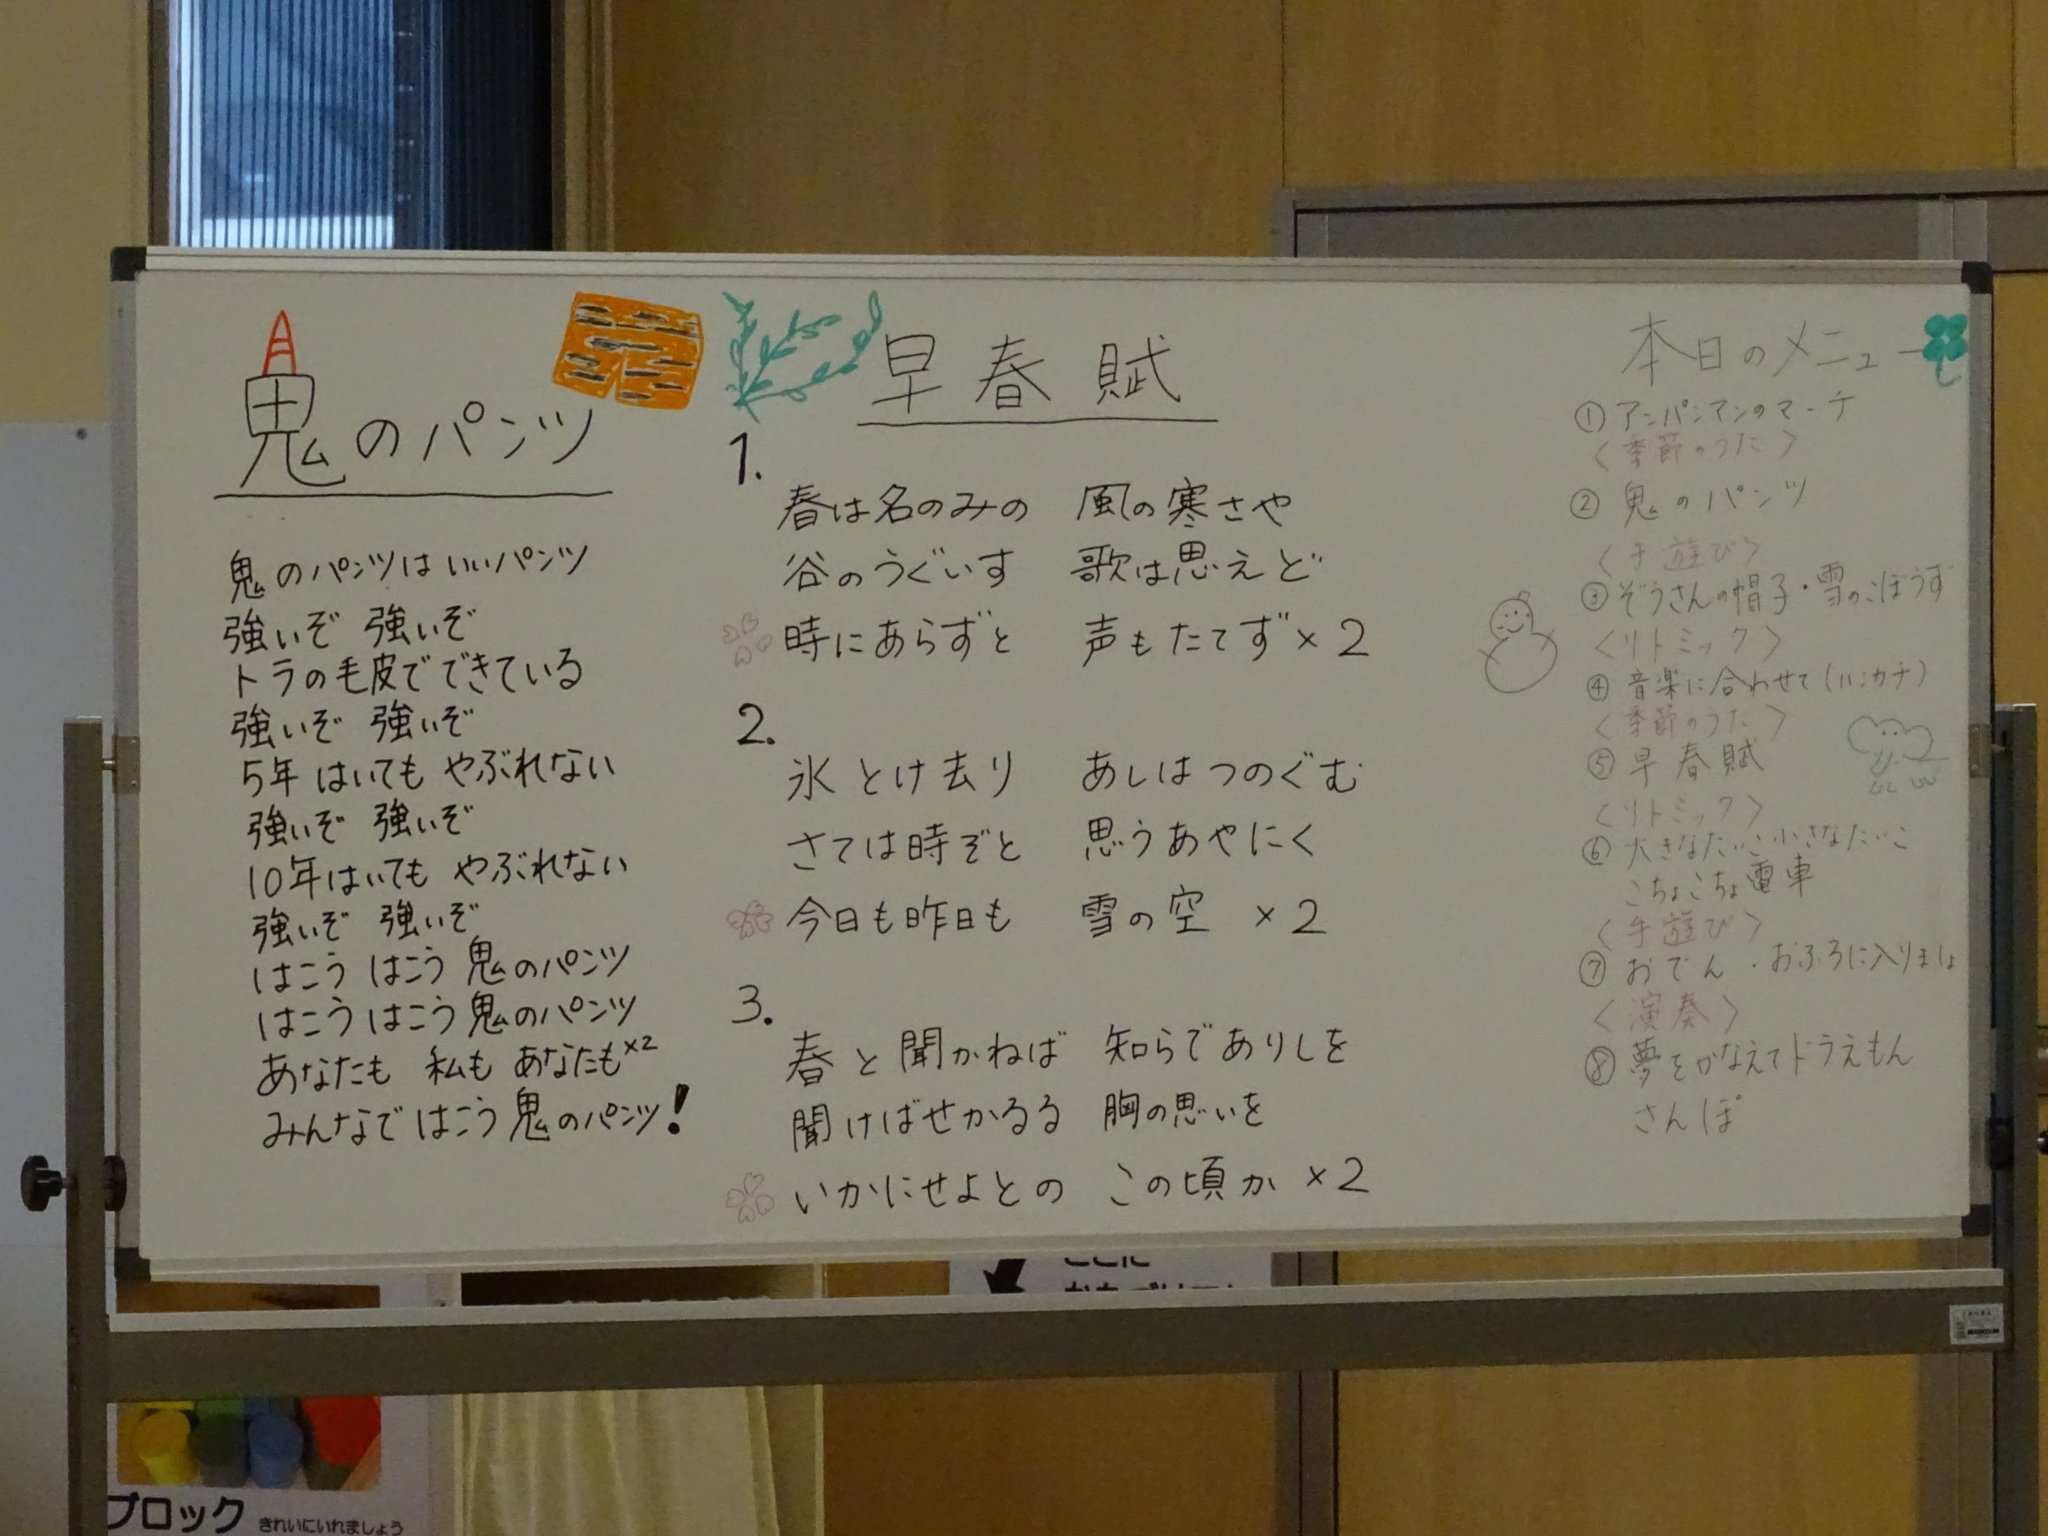 鬼のパンツ
鬼のパンツは いいパンツ
強いぞ 強いぞ
トラの毛皮で できている
強いぞ 強いぞ
5年 はいても やぶれない
強いぞ 強いぞ
10年はいても やぶれない
強いぞ 強いぞ
はこう はこう 鬼のパンツ
はこう はこう 鬼のパンツ
あなたも 私も あなたも×2
みんなで はこう 鬼のパンツ!
早春賦
1.
春は名のみの 風の寒さや
谷のうぐいす 歌は思えど
時にあらずと 声もたてず×2
2.
氷とけ去り あしはつのぐむ
さては時ぞと 思うあやにく
今日も昨日も 雪の空 ×2
3.
春と聞かねば 知らでありしを
聞けばせかるる 胸の思いを
いかにせよとの この頃か ×2
本日のメニュー
① アンパンマンのマーチ
〈季節のうた〉
② 鬼のパンツ
〈手遊び〉
③ ぞうさんの帽子・雪のこぼうず
〈リトミック〉
④ 音楽に合わせて(ハンカチ)
〈季節のうた〉
⑤ 早春賦
〈リトミック〉
⑥ 大きなたいこ小さなたいこ
こちょこちょ電車
〈手遊び〉
⑦ おでん・おふろに入りましょ
〈演奏〉
⑧ 夢をかなえてドラえもん
さんぽ
ここに
ブロック きれいにいれましょう